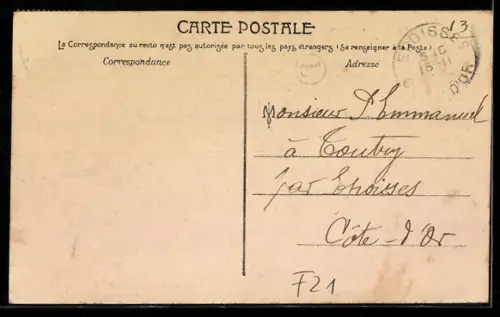 CARTE POSTALE
La Correspondance au recto n'est pas autorisée par tous les pays étrangers (Se renseigner à la Poste)
Correspondance
Adresse
13
EPOISSES
16
11
D'OR
Monsieur P. Emmanuel
à Toutry
par Epoisses
Côte-d'Or
F21